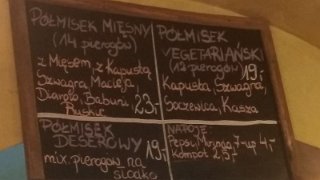 PÓŁMISEK MIĘSNY
(14 pierogów)
z Mięsem, z Kapustą
Szwagra, Macieja,
Diabło, Babuni,
Ruskie 23,-
PÓŁMISEK
VEGETARIAŃSKI
(12 pierogów) 19,-
Kapusta, Szwagra,
Soczewica, Kasza
PÓŁMISEK
DESEROWY 19,-
mix. pierogów na
słodko
NAPOJE:
Pepsi, Mirinda, 7-up 4,-
kompot 2,5,-